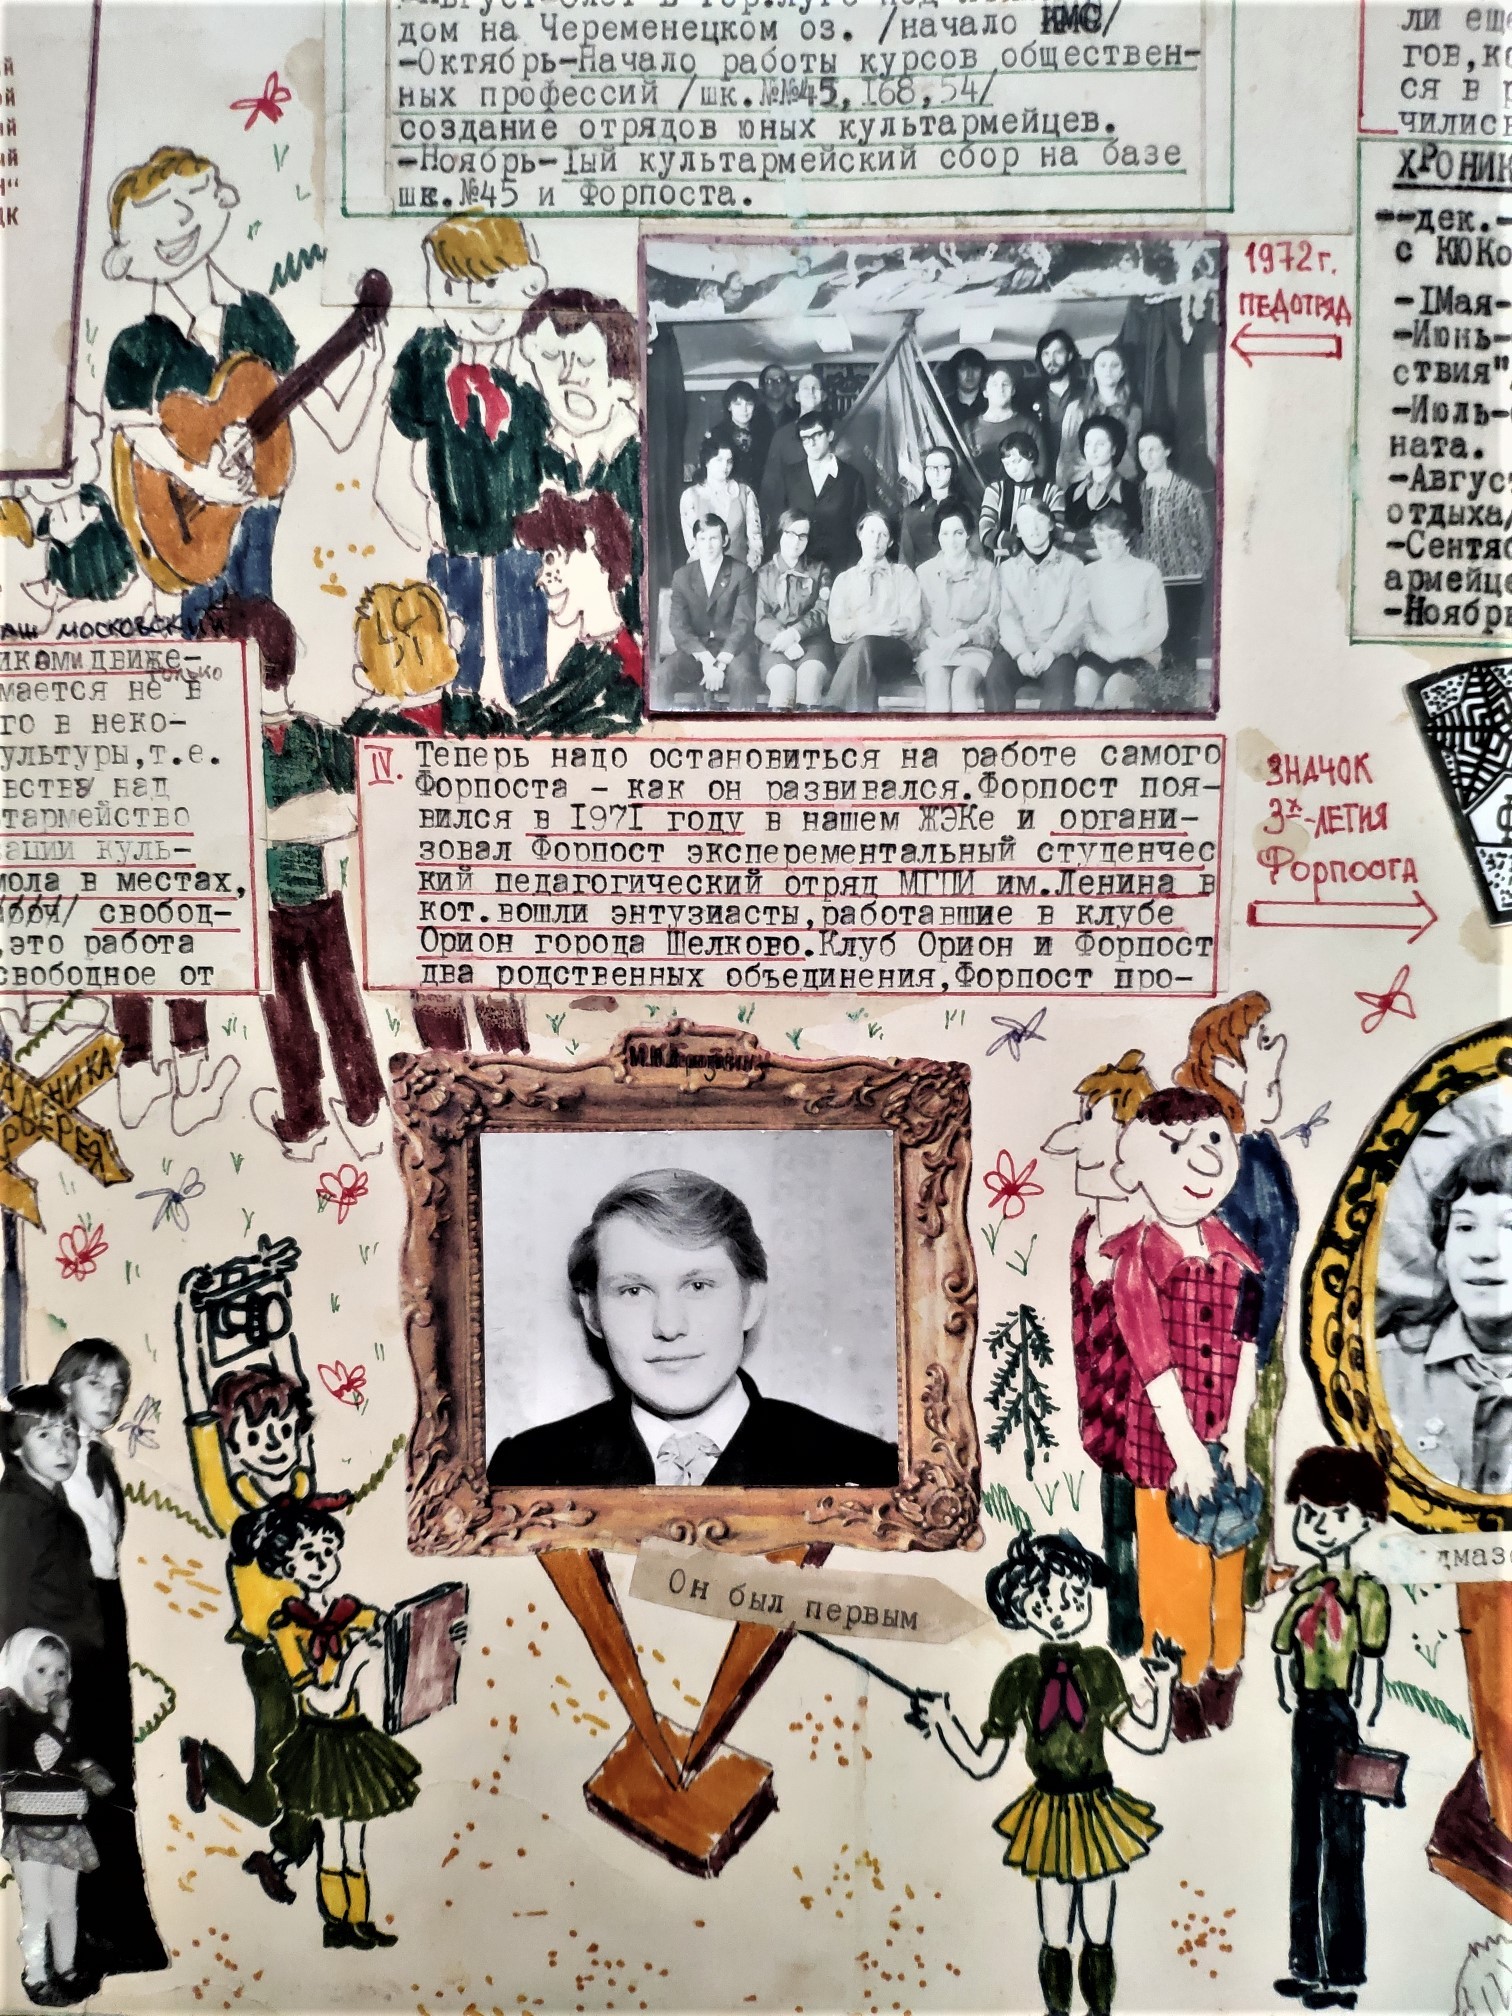 дом на Череменецком оз. /начало КМС/
-Октябрь-Начало работы курсов обществен-
ных профессий /шк.№№45,168,54/
создание отрядов юных культармейцев.
-Ноябрь-Iый культармейский сбор на базе
шк.№45 и Форпоста.
1972г.
ПЕДОТРЯД
ли ещ
гов,к
ся в
чились
ХРОНИК
-дек.-
с КЮК
-IМая-
-Июнь-
ствия"
-Июль-
ната.
-Авгус
отдыха/
-Сентя
армейц
-Ноябрь
аш московский
иками движе-
только
мается не в
го в неко-
ультуры,т.е.
вству над
тармейство
ации куль-
мола в местах,
свобод-
,это работа
свободное от
IV. Теперь надо остановиться на работе самого
Форпоста - как он развивался.Форпост поя-
вился в 1971 году в нашем ЖЭКе и органи-
зовал Форпост эксперементальный студенчес
кий педагогический отряд МГПИ им.Ленина в
кот.вошли энтузиасты,работавшие в клубе
Орион города Щелково.Клуб Орион и Форпост
два родственных объединения,Форпост про-
ЗНАЧОК
3х-ЛЕТИЯ
Форпоста
Он был первым